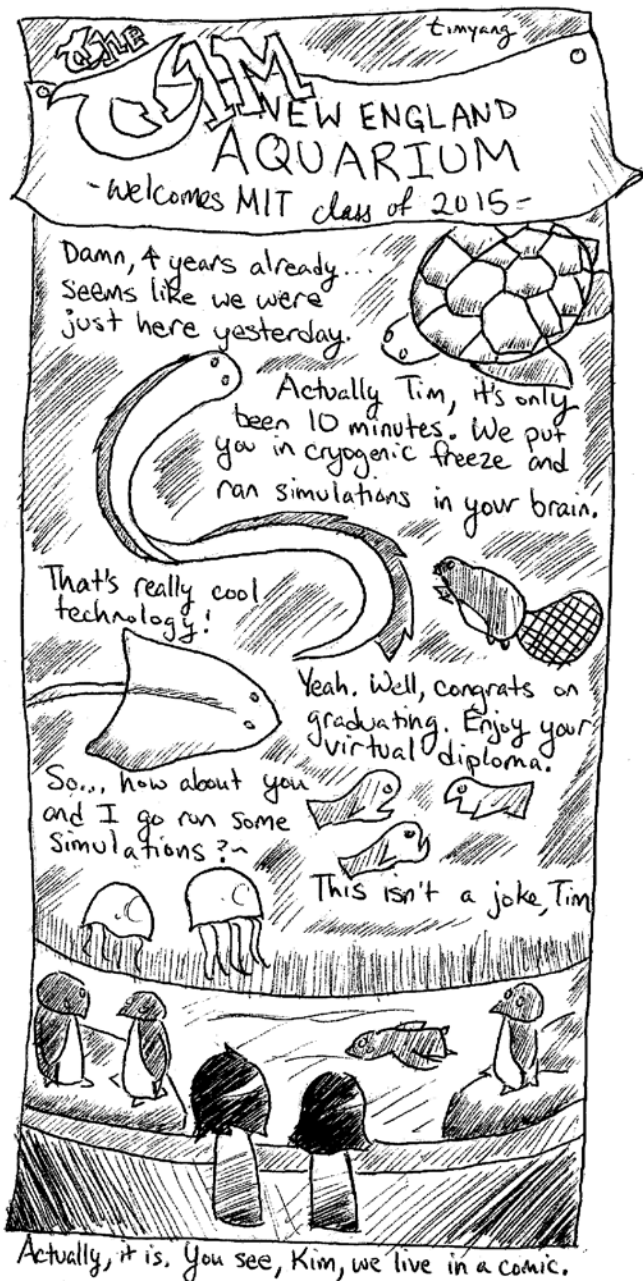 timyang
the TIM
NEW ENGLAND
AQUARIUM
-welcomes MIT class of 2015-
Damn, 4 years already...
seems like we were
just here yesterday.
Actually Tim, it's only
been 10 minutes. We put
you in cryogenic freeze and
ran simulations in your brain.
That's really cool
technology!
Yeah. Well, congrats on
graduating. Enjoy your
virtual diploma.
So... how about you
and I go run some
simulations?~
This isn't a joke, Tim
Actually, it is. You see, Kim, we live in a comic.